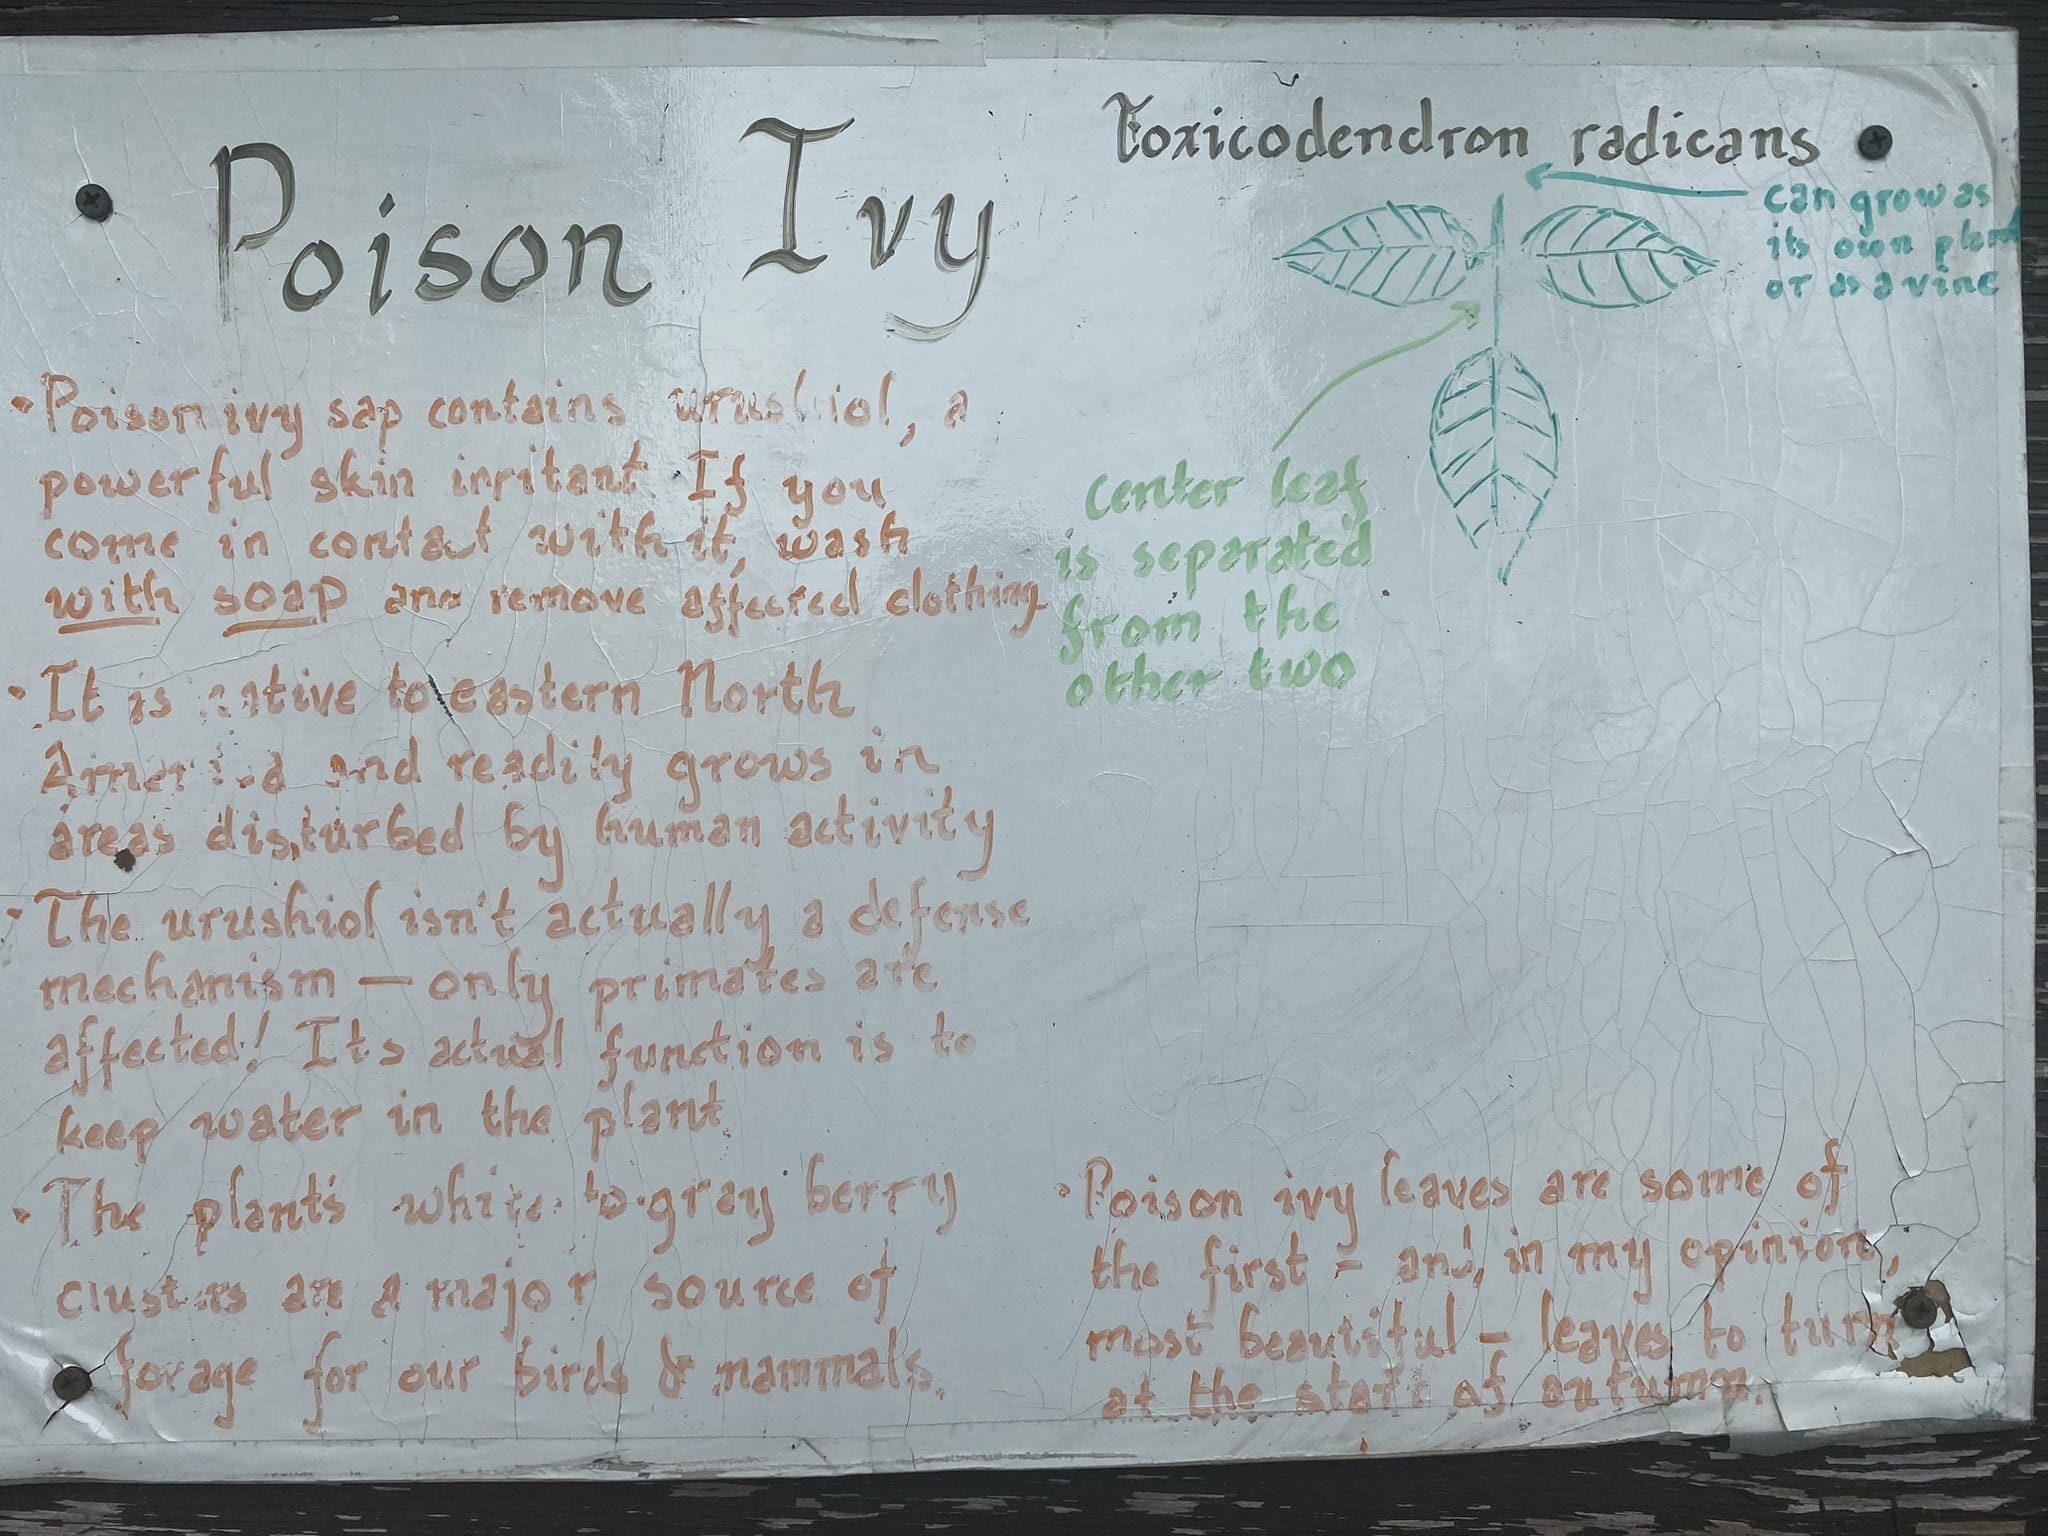 Poison Ivy
toxicodendron radicans
can grow as
its own plant
or as a vine
center leaf
is separated
from the
other two
• Poison ivy sap contains urushiol, a
powerful skin irritant. If you
come in contact with it, wash
with soap and remove affected clothing.
• It is native to eastern North
America and readily grows in
areas disturbed by human activity
• The urushiol isn't actually a defense
mechanism — only primates are
affected! Its actual function is to
keep water in the plant
• The plant's white-to-gray berry
clusters are a major source of
forage for our birds & mammals.
• Poison ivy leaves are some of
the first - and, in my opinion,
most beautiful - leaves to turn
at the start of autumn.